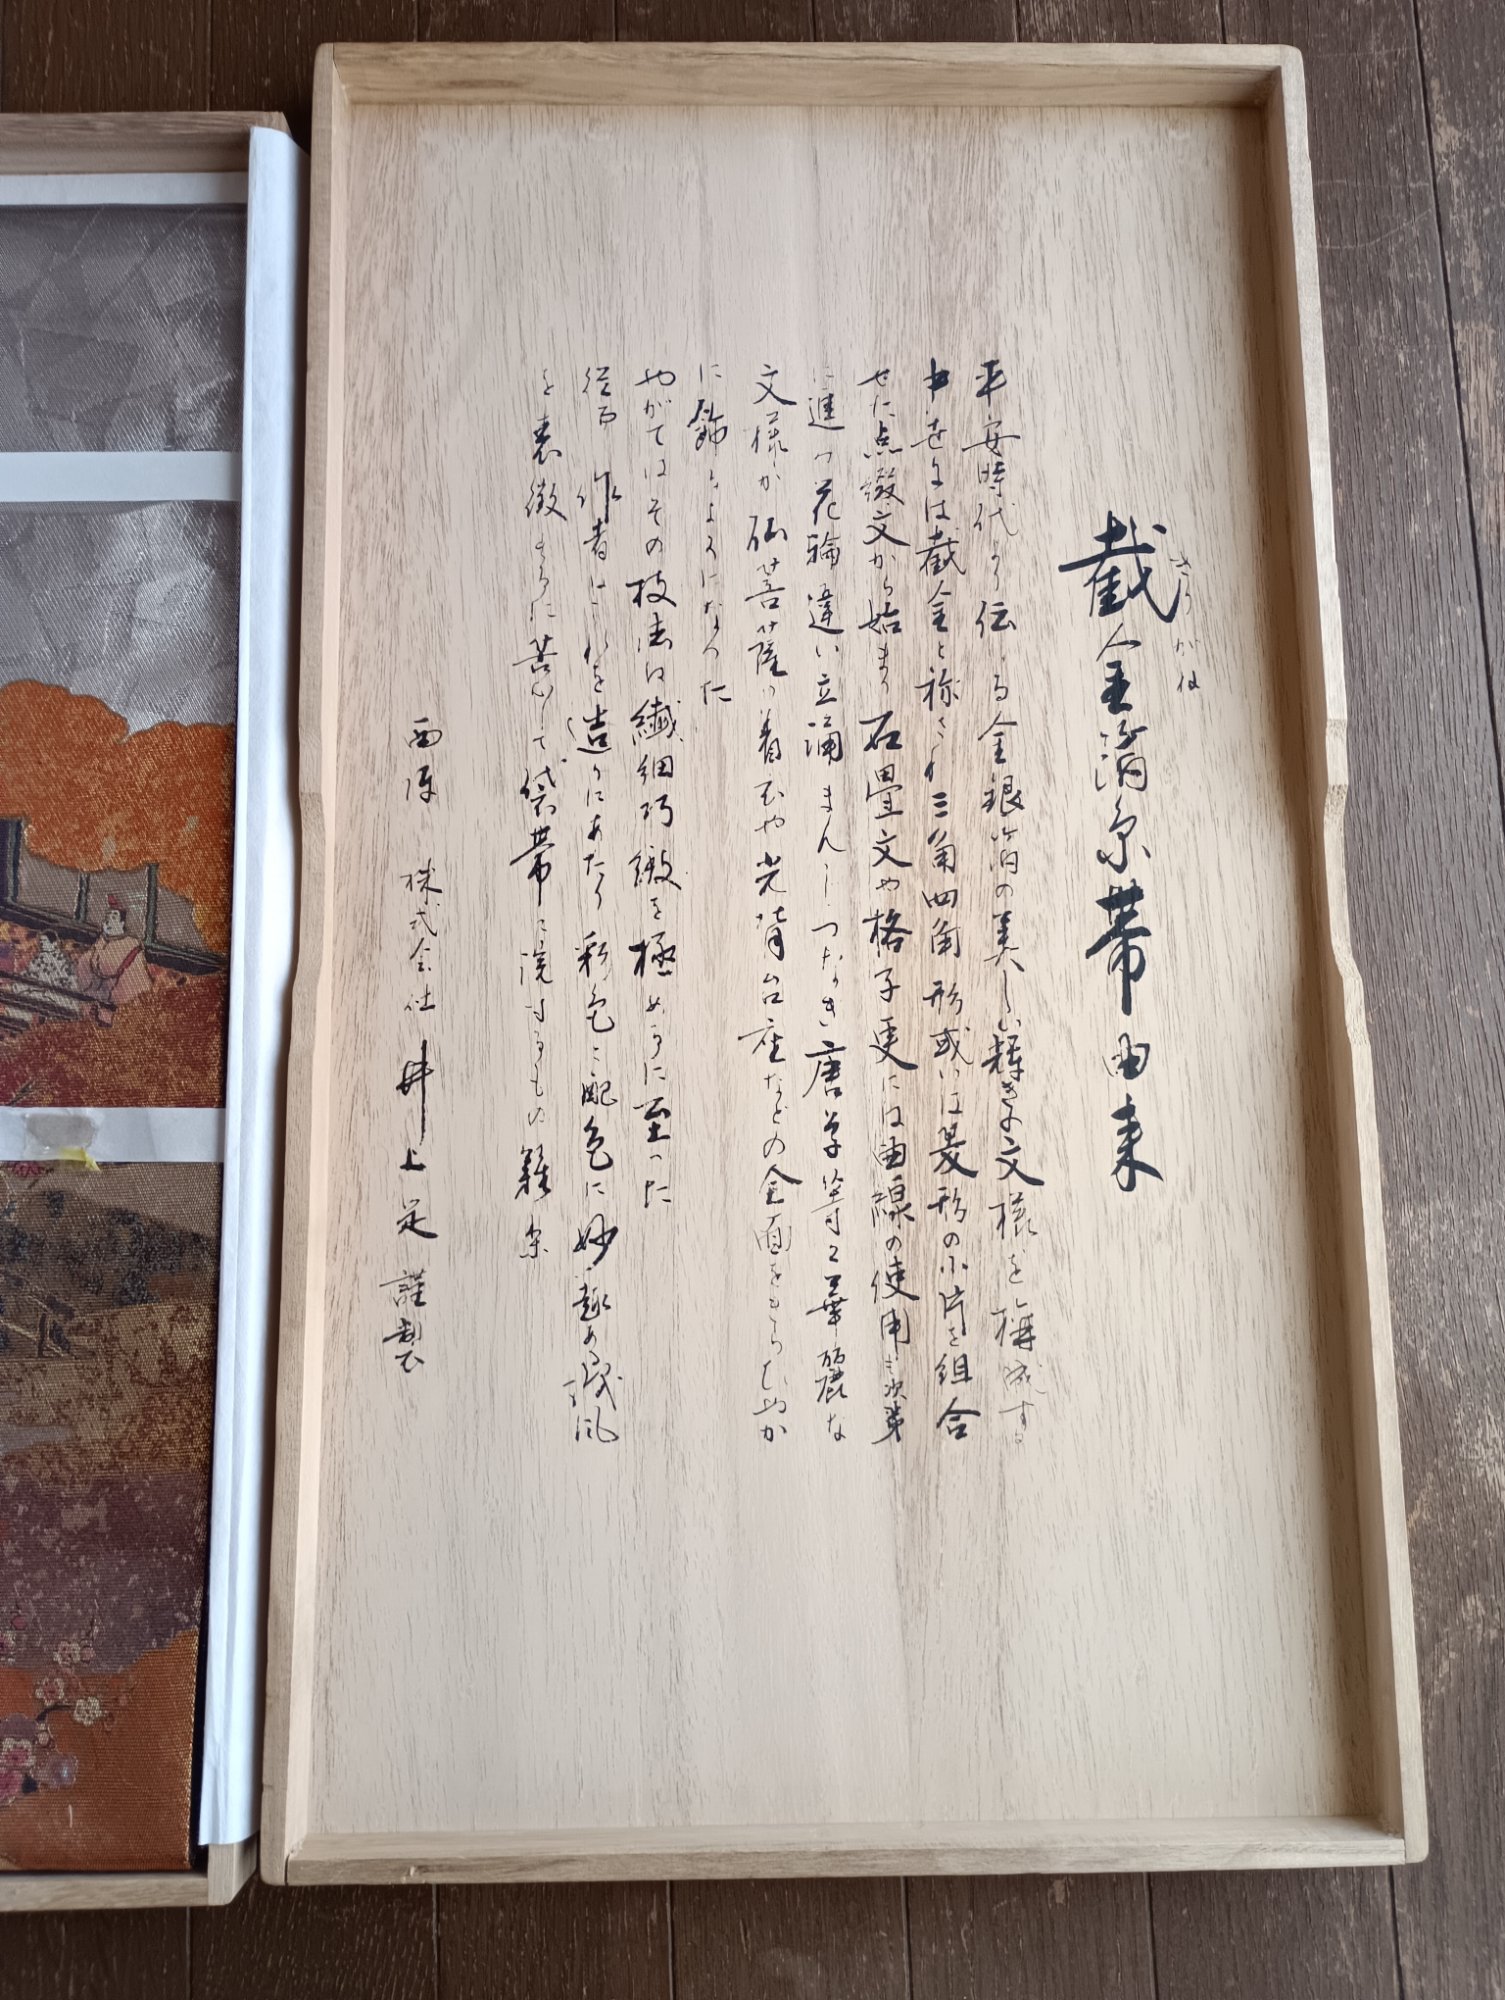 きりがね
截金箔糸帯由来
平安時代より伝わる金銀箔の美しい輝きで文様を構成する
中世では截金と称され三角四角形或いは菱形の小片を組合
せた点綴文から始まり石畳文や格子更には曲線の使用に次第
に進み花輪違い立涌まんじつなぎ唐草等々華麗な
文様が仏菩薩の着衣や光背台座などの全面をきらびやか
に飾るようになった
やがてはその技法は繊細巧緻を極めるに至った
従而 作者はこれを造るにあたり彩色に配色に妙趣ある
を表徴さらに苦心して袋帯に
西陣 株式会社 井上 謹製